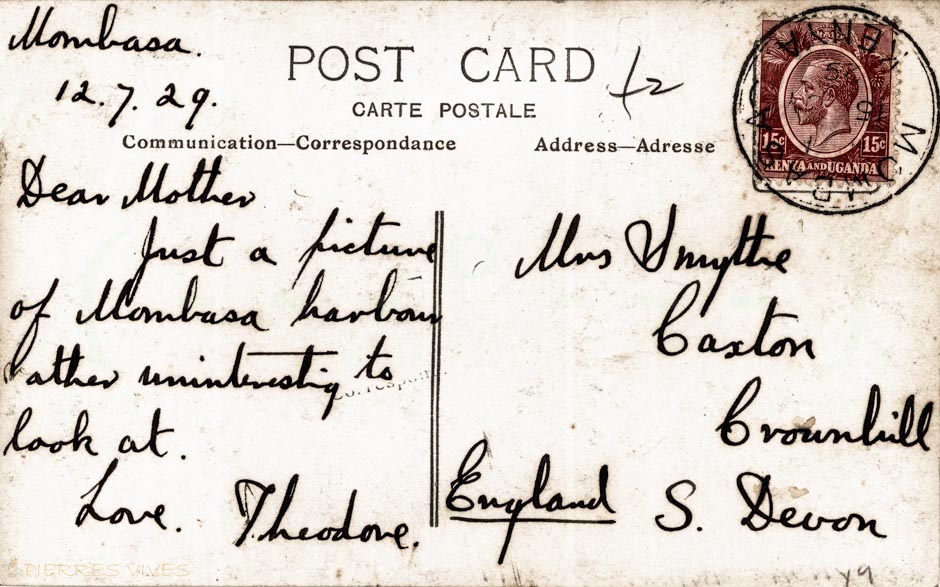 Mombasa.
12.7.29.
POST CARD
CARTE POSTALE
Communication—Correspondance
Address—Adresse
15c 15c
KENYA AND UGANDA
MOMBASA
KENYA
Dear Mother
Just a picture
of Mombasa harbour
rather uninterestig to
look at.
Love.
Theodore.
Mrs Smythe
Caxton
Crownhill
S. Devon
England
PIERRES VIVES